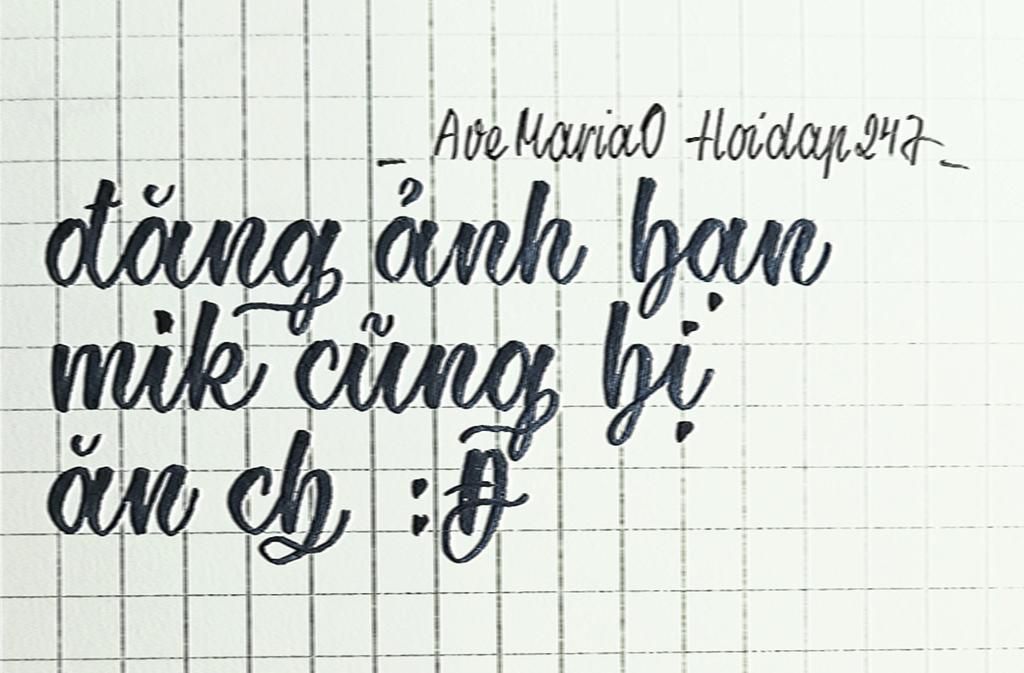 _ AveMaria0 Hoidap247_
đăng ảnh bạn
mik cũng bị
ăn ch :Đ